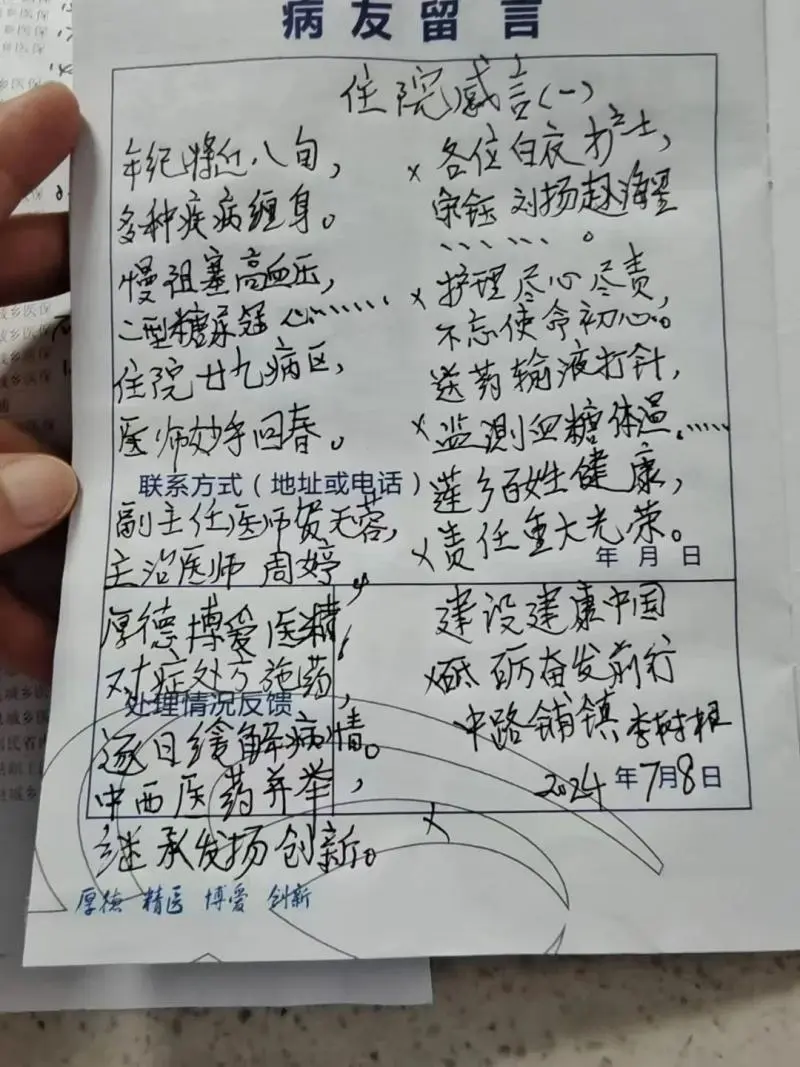 病友留言
住院感言(一)
年纪将近八旬,
多种疾病缠身。
慢阻塞高血压,
二型糖尿冠心……
住院廿九病区,
医师妙手回春。
联系方式(地址或电话)
副主任医师贺无蓉,
主治医师 周婷,
厚德博爱医精,
对症处方施药,
处理情况反馈
逐日缓解病情。
中西医药并举,
继承发扬创新。
x 各位白衣护士,
宋钰 刘扬赵海
……。
x 护理尽心尽责,
不忘使命初心。
送药输液打针,
x 监测血糖体温……
莲乡百姓健康,
x 责任重大光荣。
年 月 日
建设健康中国
x 砥砺奋发前行
中路铺镇 李树根
2024年7月8日
x
厚德 精医 博爱 创新